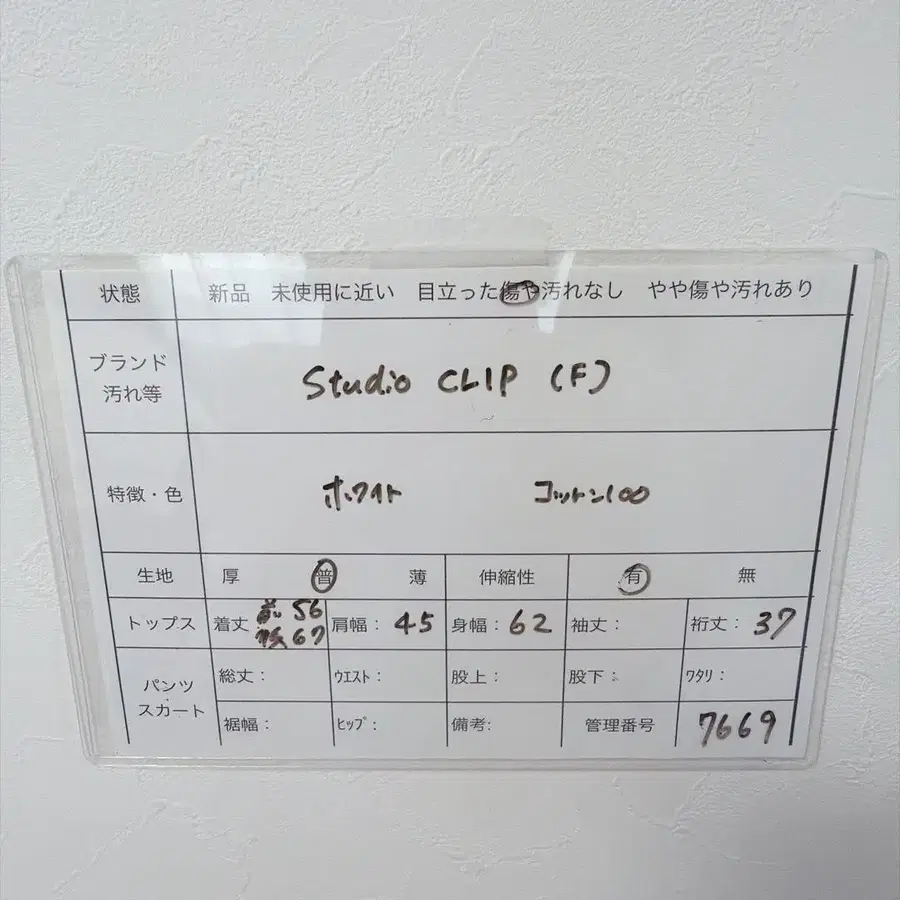 状態 新品 未使用に近い 目立った傷や汚れなし やや傷や汚れあり
ブランド
汚れ等
Studio CLIP (F)
特徴・色 ホワイト コットン100
生地 厚 普 薄 伸縮性 有 無
トップス 着丈 前 56 後 67 肩幅: 45 身幅: 62 袖丈: 裄丈: 37
パンツ
スカート
総丈: ウエスト: 股上: 股下: ワタリ:
裾幅: ヒップ: 備考: 管理番号 7669